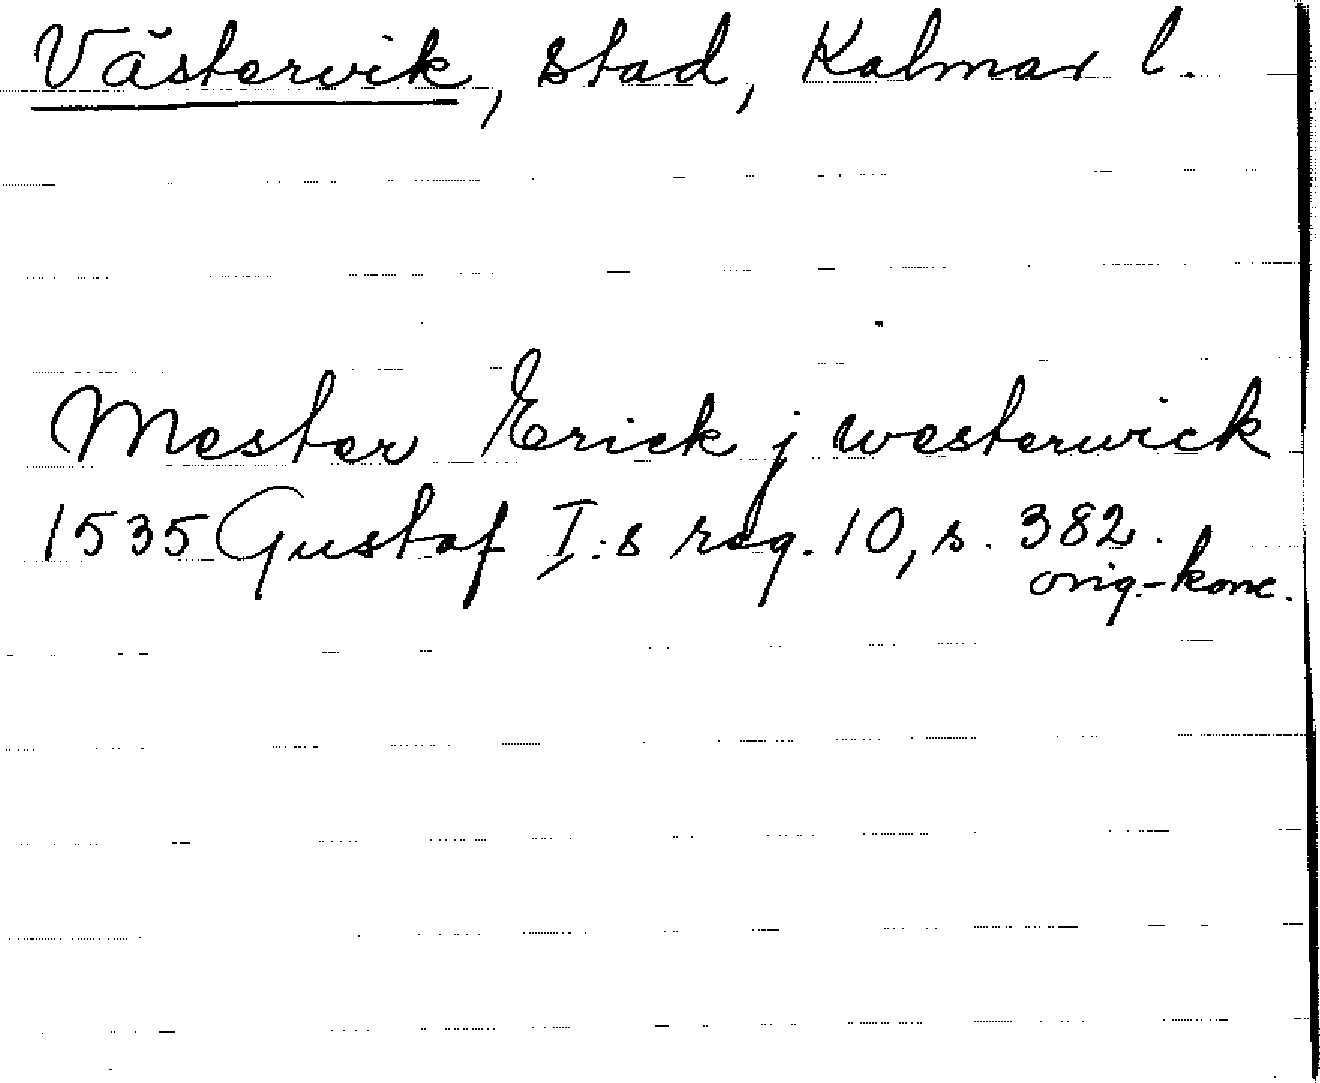 Västervik, stad, Kalmar l.
Mester Erick j westerwick
1535 Gustaf I:s reg. 10, s. 382.
orig.-konc.